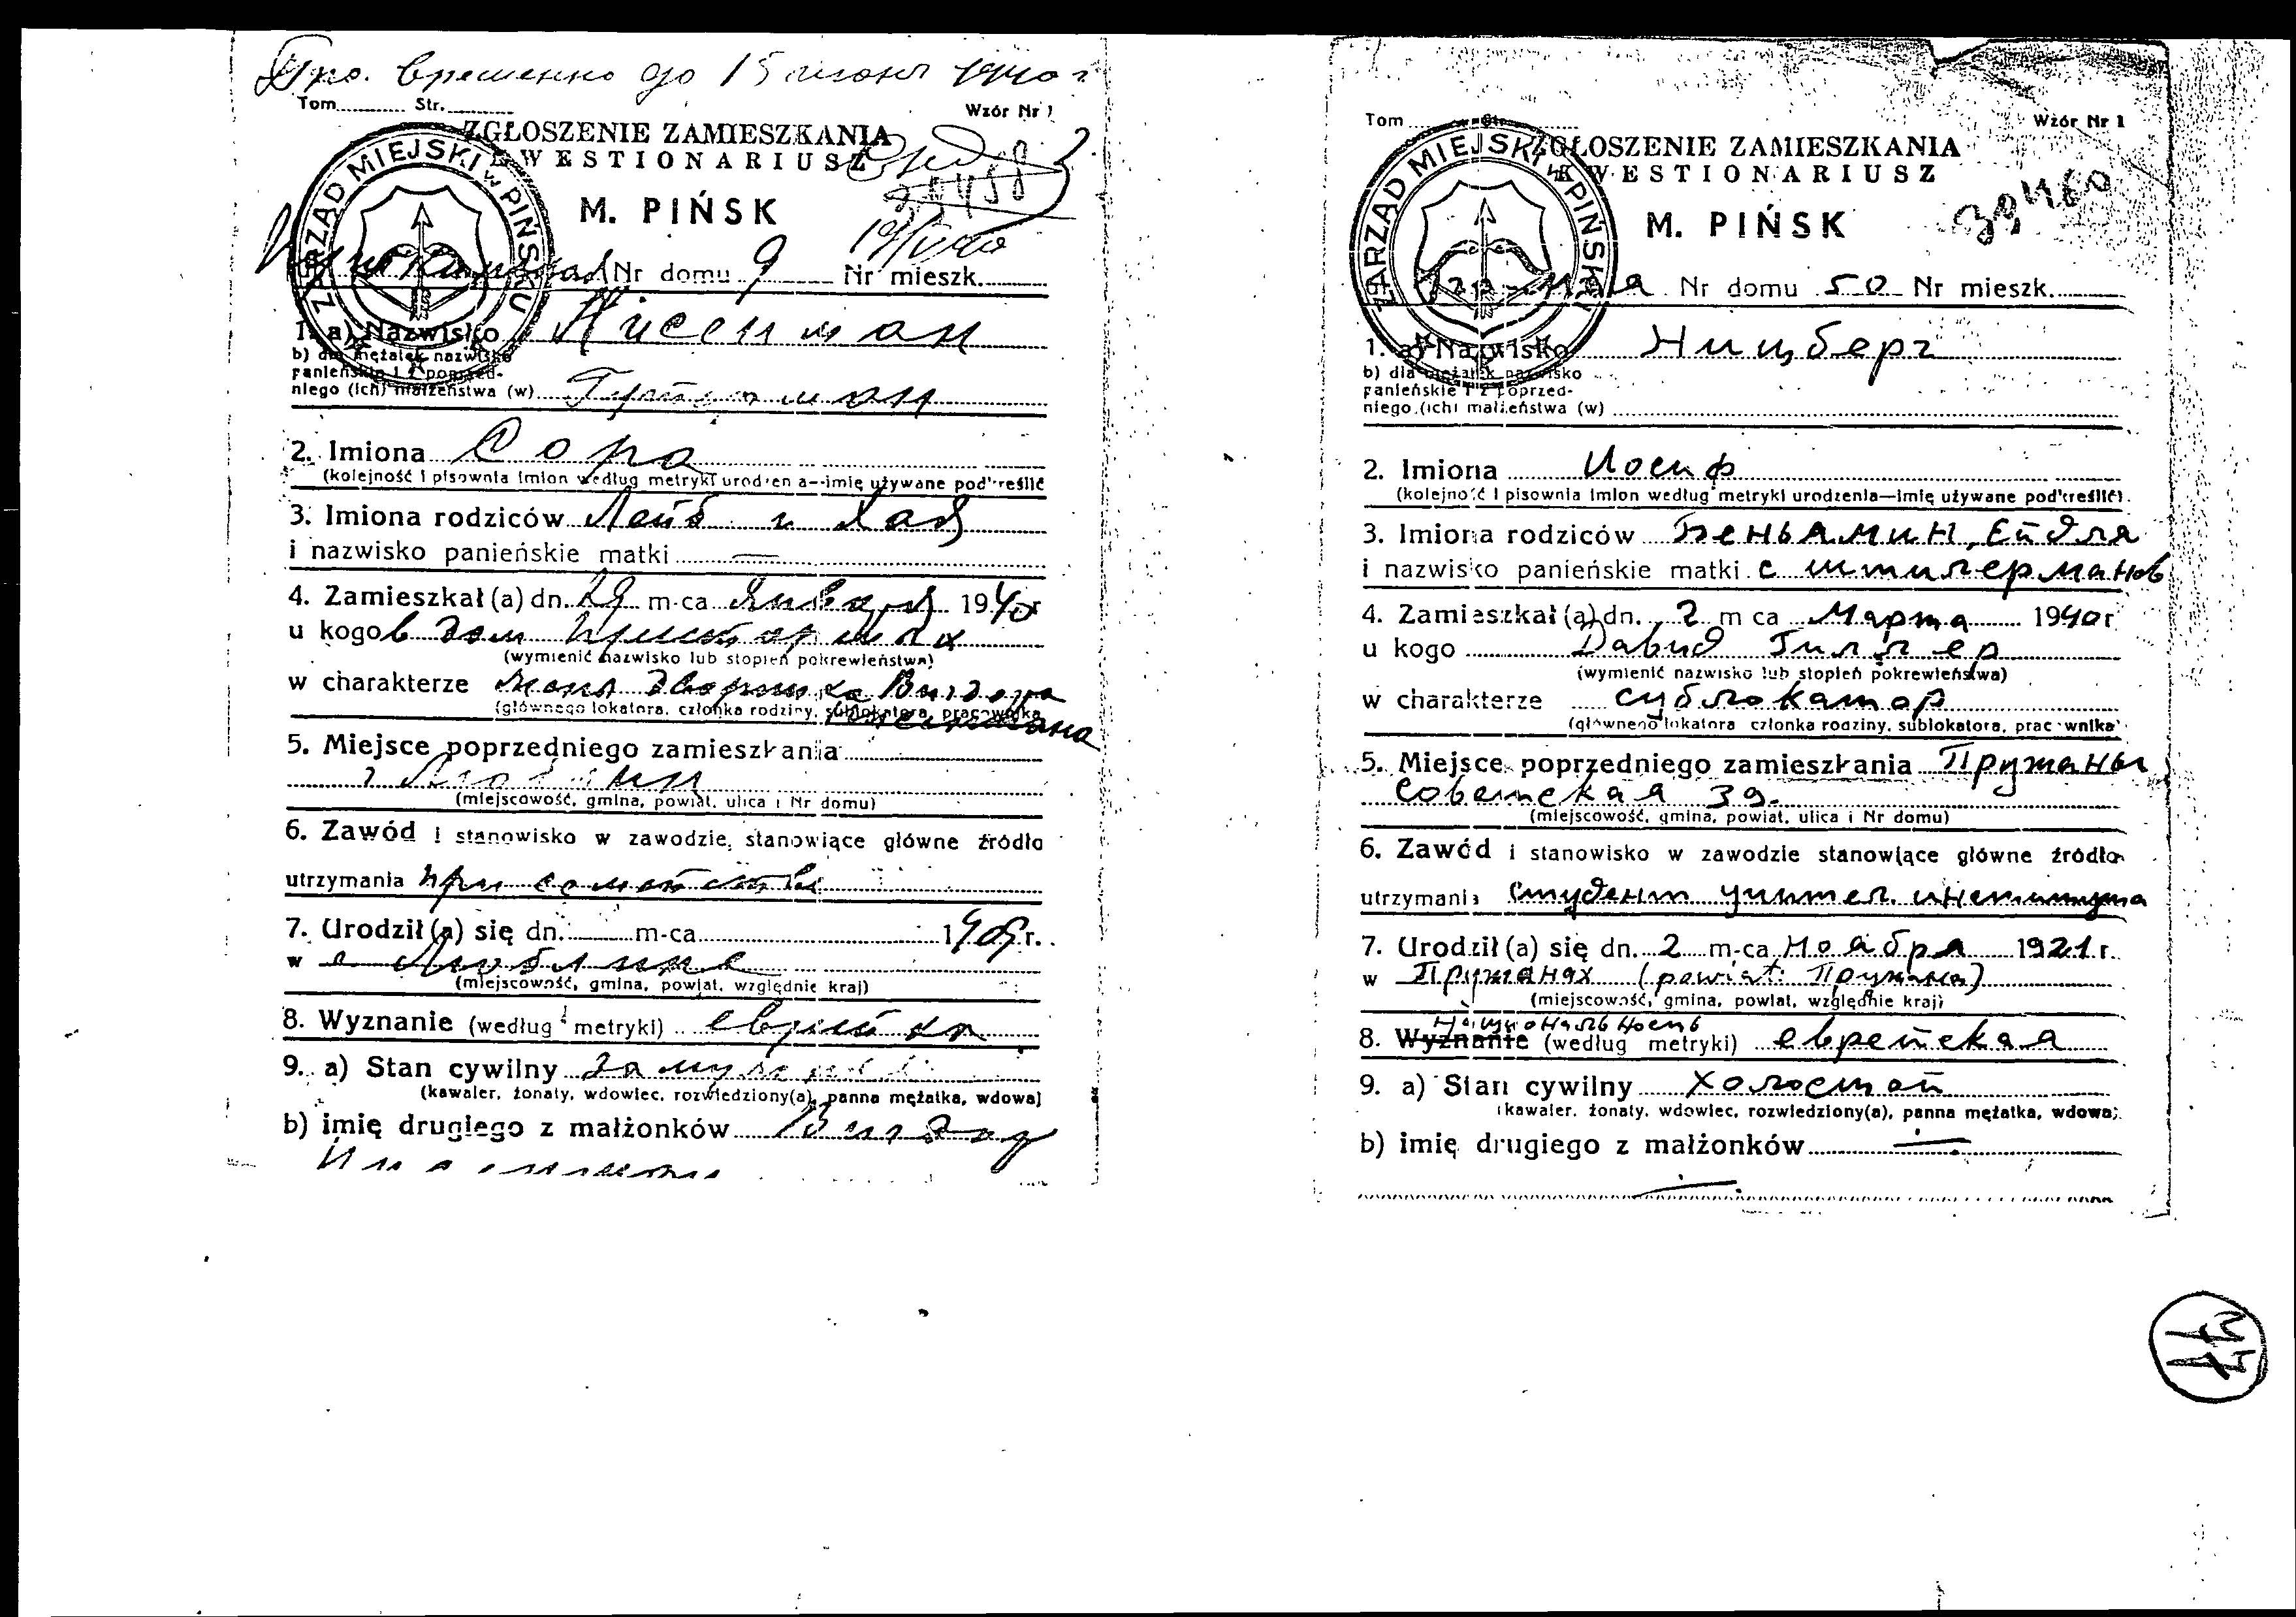 Про. временно до 15 июня 1940 г
Tom Str. Wzór Nr 1
ZGŁOSZENIE ZAMIESZKANIA
KWESTIONARIUSZ
39458
M. PIŃSK
19/V 40
ZARZĄD MIEJSKI w PIŃSKU
Nr domu 9 Nr mieszk.
1. a) Nazwisko Нисенман
b) dla mężatek nazwisko
panieńskie i z poprzed-
niego (ich) małżeństwa (w)
2. Imiona Сора
(kolejność i pisownia imion według metryki urodzen a—imię używane podkreślić
3. Imiona rodziców Лейб и Хая
i nazwisko panieńskie matki —
4. Zamieszkał (a) dn. 29 m-ca Января 1940 г
u kogo в дом
(wymienić nazwisko lub stopień pokrewieństwa)
w charakterze жена дворника
(głównego lokatora, członka rodziny, sublokatora, pracownika
5. Miejsce poprzedniego zamieszkania
г Люблин
(miejscowość, gmina, powiat, ulica i Nr domu)
6. Zawód i stanowisko w zawodzie, stanowiące główne źródło
utrzymania при
7. Urodził (a) się dn. m-ca 1909 r.
w г Люблине
(miejscowość, gmina, powiat, względnie kraj)
8. Wyznanie (według metryki) еврейка
9. a) Stan cywilny замужняя
(kawaler, żonaty, wdowiec, rozwiedziony(a), panna mężatka, wdowa)
b) imię drugiego z małżonków
Tom Str. Wzór Nr 1
ZGŁOSZENIE ZAMIESZKANIA
KWESTIONARIUSZ
39460
M. PIŃSK
ZARZĄD MIEJSKI w PIŃSKU
Nr domu 50 Nr mieszk.
1. a) Nazwisko Ницберг
b) dla mężatek nazwisko
panieńskie i z poprzed-
niego (ich) małżeństwa (w)
2. Imiona Иосиф
(kolejność i pisownia imion według metryki urodzenia—imię używane podkreślić).
3. Imiona rodziców Беньямин, Ейдля
i nazwisko panieńskie matki с Штилерманов
4. Zamieszkał (a) dn. 2 m ca Марта 1940 r
u kogo Давид Гиллер
(wymienić nazwisko lub stopień pokrewieństwa)
w charakterze сублокатор
(głównego lokatora członka rodziny, sublokatora, pracownika)
5. Miejsce poprzedniego zamieszkania Пружаны
Советская 39.
(miejscowość, gmina, powiat, ulica i Nr domu)
6. Zawód i stanowisko w zawodzie stanowiące główne źródło
utrzymania Студент учител. института
7. Urodził (a) się dn. 2 m-ca Ноября 1921 r.
w Пружанах (powiat: Пружана)
(miejscowość, gmina, powiat, względnie kraj)
Национальность
8. Wyznanie (według metryki) еврейская
9. a) Stan cywilny холостой
(kawaler, żonaty, wdowiec, rozwiedziony(a), panna mężatka, wdowa).
b) imię drugiego z małżonków —
—